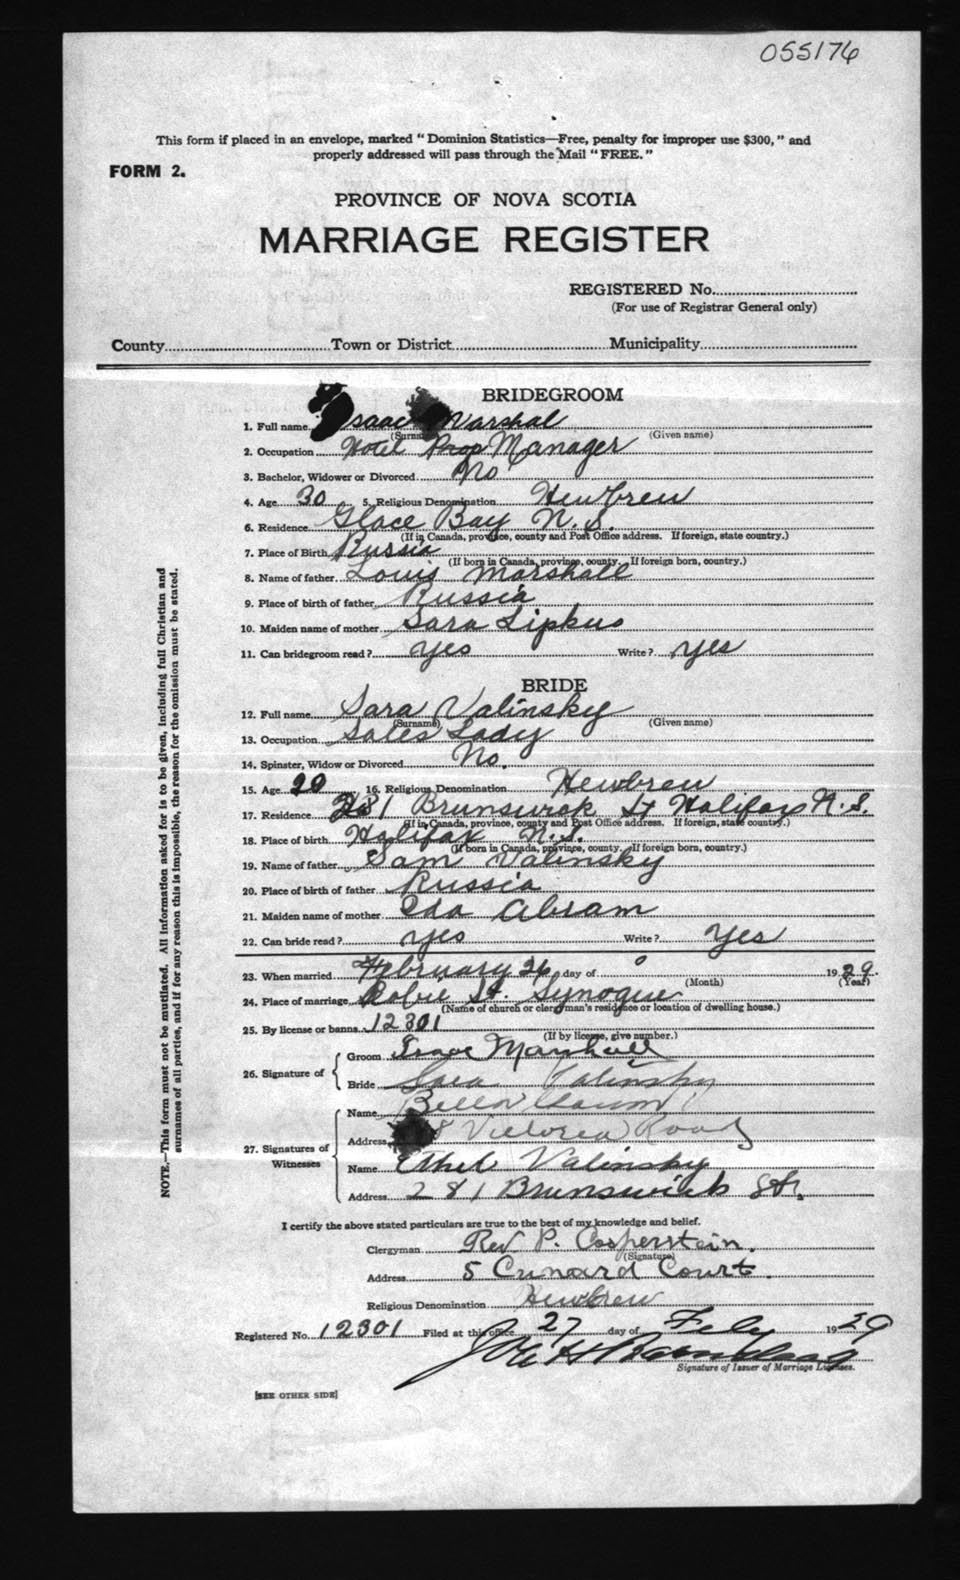 055176
This form if placed in an envelope, marked "Dominion Statistics—Free, penalty for improper use $300," and
properly addressed will pass through the Mail "FREE."
FORM 2.
PROVINCE OF NOVA SCOTIA
MARRIAGE REGISTER
REGISTERED No.
(For use of Registrar General only)
County Town or District Municipality
BRIDEGROOM
1. Full name Isaac Marshal
(Surname) (Given name)
2. Occupation Hotel Prop Manager
3. Bachelor, Widower or Divorced No
4. Age 30 5. Religious Denomination Hewbrew
6. Residence Glace Bay N.S.
(If in Canada, province, county and Post Office address. If foreign, state country.)
7. Place of Birth Russia
(If born in Canada, province, county. If foreign born, country.)
8. Name of father Louis Marshall
9. Place of birth of father Russia
10. Maiden name of mother Sara Lipkus
11. Can bridegroom read? yes Write? yes
BRIDE
12. Full name Sara Valinsky
(Surname) (Given name)
13. Occupation Sales Lady
14. Spinster, Widow or Divorced No.
15. Age 20 16. Religious Denomination Hewbrew
17. Residence 281 Brunswick St Halifax N.S.
(If in Canada, province, county and Post Office address. If foreign, state country.)
18. Place of birth Halifax N.S.
(If born in Canada, province, county. If foreign born, country.)
19. Name of father Sam Valinsky
20. Place of birth of father Russia
21. Maiden name of mother Ida Abram
22. Can bride read? yes Write? Yes
23. When married February 26 day of 1929.
(Month) (Year)
24. Place of marriage Robie St. Synogue
(Name of church or clergyman's residence or location of dwelling house.)
25. By license or banns 12301
(If by license, give number.)
26. Signature of
Groom Isaac Marshall
Bride Sara Valinsky
27. Signatures of Witnesses
Name Bella
Address Victoria Road
Name Ethel Valinsky
Address 281 Brunswick St.
I certify the above stated particulars are true to the best of my knowledge and belief.
Clergyman Rev P. Cosperstein.
(Signature)
Address 5 Cunard Court.
Religious Denomination Hewbrew
Registered No. 12301 Filed at this office 27 day of Feby 1929
Signature of Issuer of Marriage Licenses.
[SEE OTHER SIDE]
NOTE.—This form must not be mutilated. All information asked for is to be given, including full Christian and
surnames of all parties, and if for any reason this is impossible, the reason for the omission must be stated.